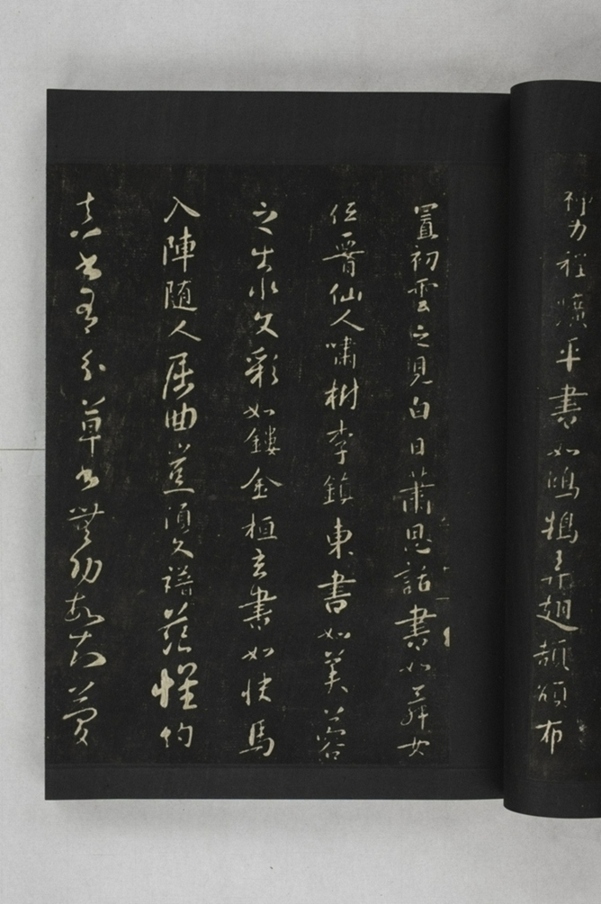 程曠平書如鴻鵠弄翅頡頏布
置初雲之見白日蕭思話書如舞女
仙人嘯樹李鎮東書如芙蓉
之出水文彩如鏤金桓玄書如快馬
入陣隨人屈曲豈須文譜范懷約
真書有分草書無功故知